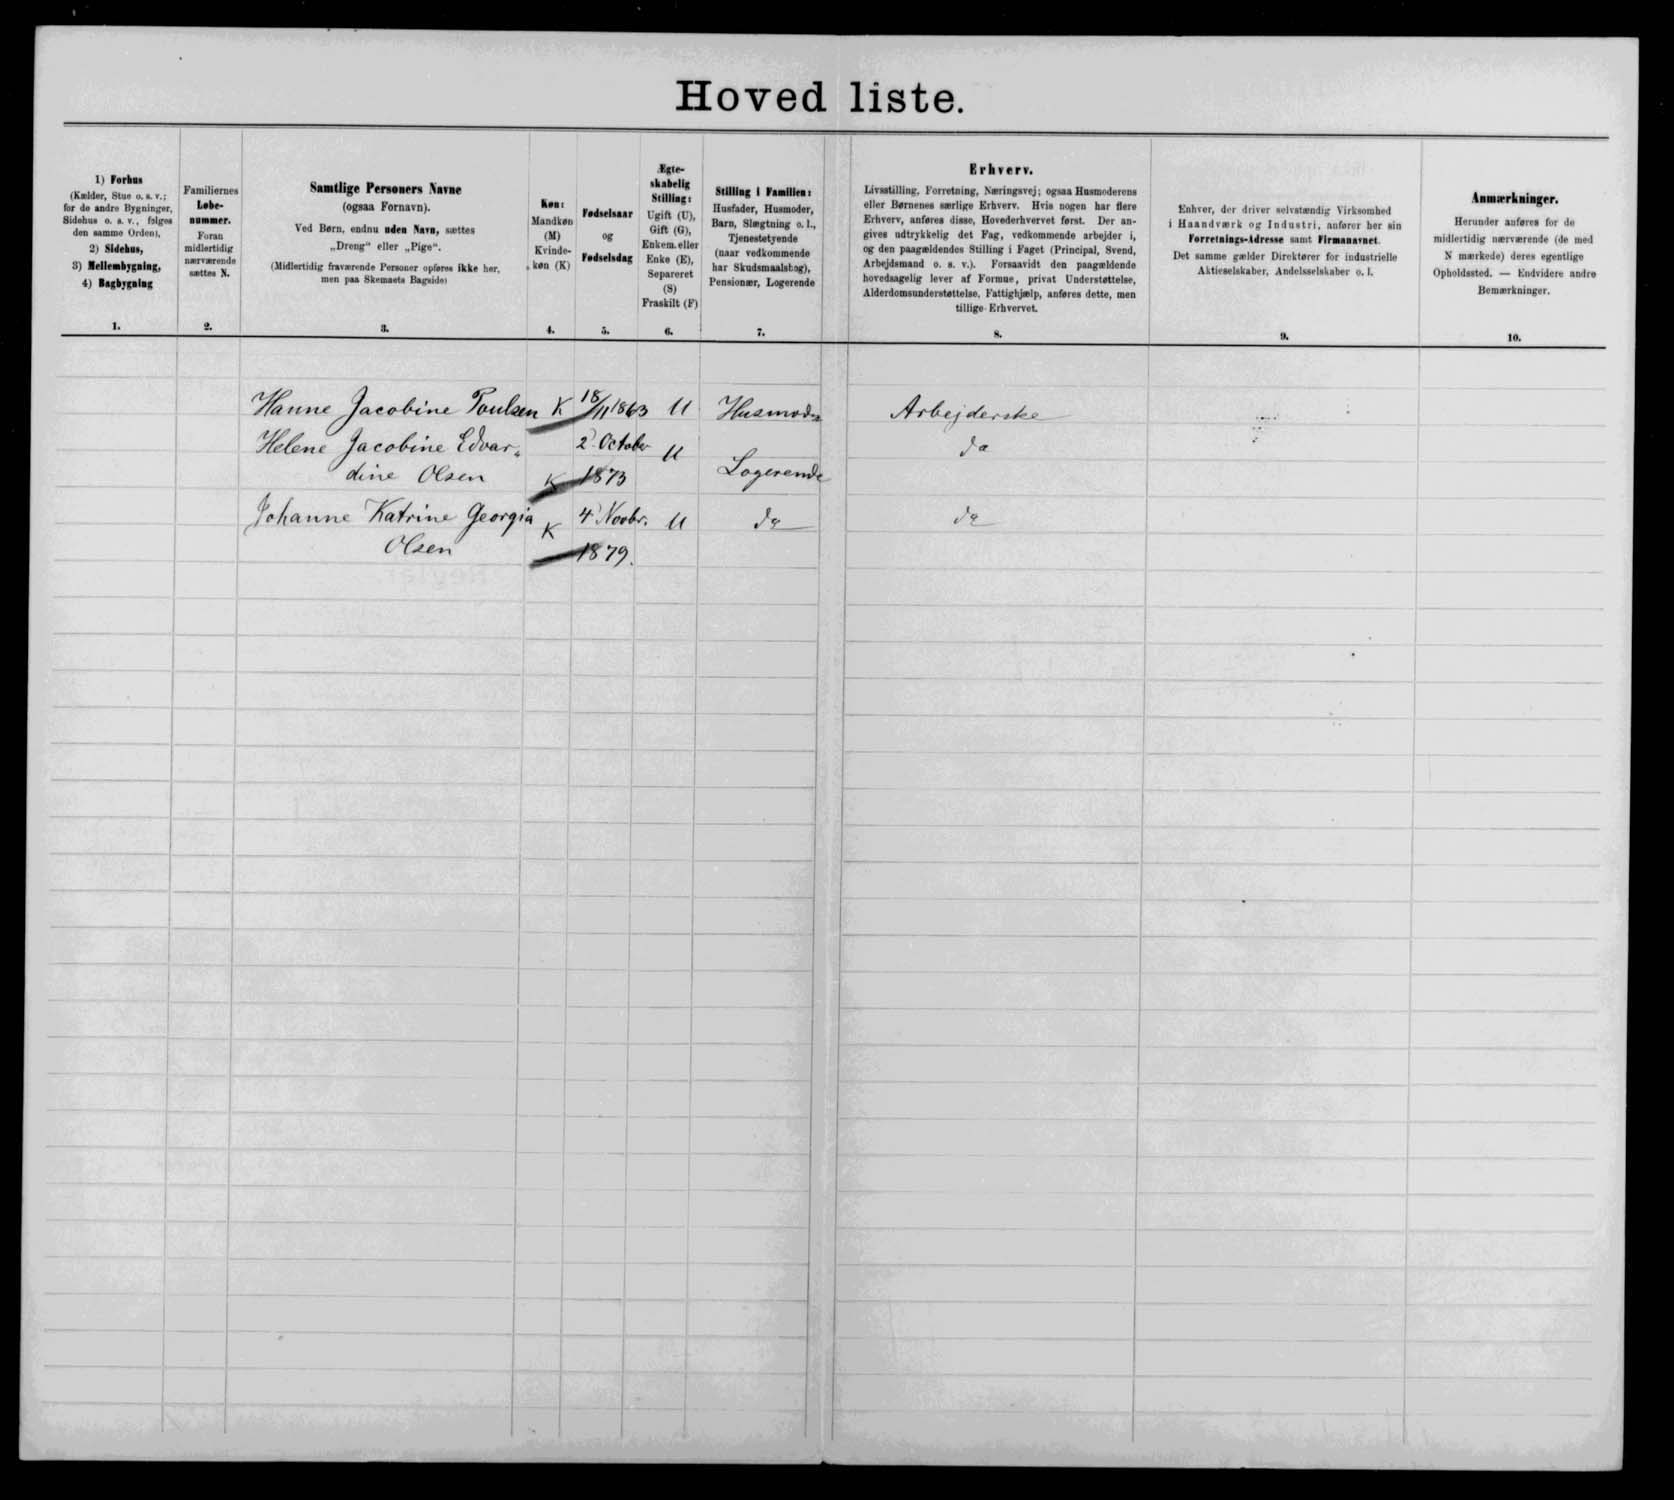 Hoved liste.
1) Forhus
(Kælder, Stue o. s. v.;
for de andre Bygninger,
Sidehus o. s. v., følges
den samme Orden),
2) Sidehus,
3) Mellembygning,
4) Bagbygning
1.
Familiernes
Løbe-
nummer.
Foran
midlertidig
nærværende
sættes N.
2.
Samtlige Personers Navne
(ogsaa Fornavn).
Ved Børn, endnu uden Navn, sættes
„Dreng“ eller „Pige“.
(Midlertidig fraværende Personer opføres ikke her,
men paa Skemaets Bagside)
3.
Køn:
Mandkøn
(M)
Kvinde-
køn (K)
4.
Fødselsaar
og
Fødselsdag
5.
Ægte-
skabelig
Stilling:
Ugift (U),
Gift (G),
Enkem. eller
Enke (E),
Separeret
(S)
Fraskilt (F)
6.
Stilling i Familien:
Husfader, Husmoder,
Barn, Slægtning o. l.,
Tjenestetyende
(naar vedkommende
har Skudsmaalsbog),
Pensionær, Logerende
7.
Erhverv.
Livsstilling, Forretning, Næringsvej; ogsaa Husmoderens
eller Børnenes særlige Erhverv. Hvis nogen har flere
Erhverv, anføres disse, Hovederhvervet først. Der an-
gives udtrykkelig det Fag, vedkommende arbejder i,
og den paagældendes Stilling i Faget (Principal, Svend,
Arbejdsmand o. s. v.). Forsaavidt den paagældende
hovedsagelig lever af Formue, privat Understøttelse,
Alderdomsunderstøttelse, Fattighjælp, anføres dette, men
tillige Erhvervet.
8.
Enhver, der driver selvstændig Virksomhed
i Haandværk og Industri, anfører her sin
Forretnings-Adresse samt Firmanavnet.
Det samme gælder Direktører for industrielle
Aktieselskaber, Andelsselskaber o. l.
9.
Anmærkninger.
Herunder anføres for de
midlertidig nærværende (de med
N mærkede) deres egentlige
Opholdssted. — Endvidere andre
Bemærkninger.
10.
Hanne Jacobine Poulsen K 18/11 1863 U Husmoder Arbejderske
Helene Jacobine Edvar„ 2' October U da
dine Olsen K 1873 Logerende
Johanne Katrine Georgia K 4' Novbr. U da da
Olsen 1879.